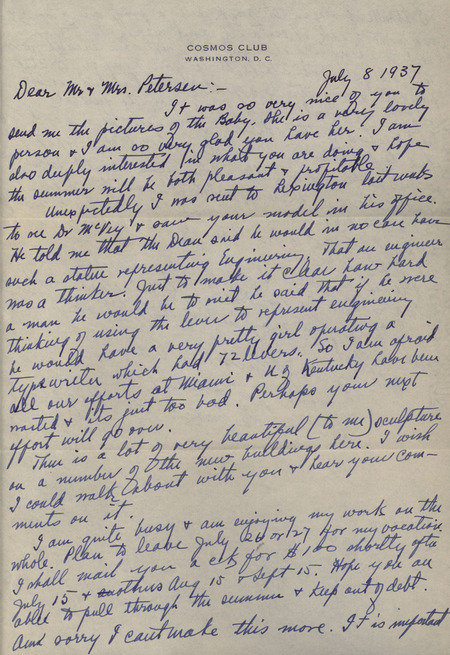 COSMOS CLUB
WASHINGTON, D. C.
July 8 1937
Dear Mr & Mrs. Petersen:-
It was so very nice of you to
send me the pictures of the Baby. She is a very lovely
person & I am so very glad you have her. I am
also deeply interested in what you are doing & hope
the summer will be both pleasant & profitable.
Unexpectedly I was sent to Lexington last week
to see Dr McVey & saw your model in his office.
He told me that the Dean said he would in no case have
such a statue representing Engineering. That an engineer
was a thinker. Just to make it clear how hard
a man he would be to meet he said that if he were
thinking of using the lever to represent engineering
he would have a very pretty girl operating a
typewriter which had 72 levers. So I am afraid
all our efforts at Miami & U of Kentucky have been
wasted & its just too bad. Perhaps your next
effort will go over.
There is a lot of very beautiful (to me) sculpture
on a number of the new buildings here. I wish
I could walk about with you & hear your com-
ments on it.
I am quite busy & am enjoying my work on the
whole. Plan to leave July 26 or 27 for my vacation.
I shall mail you a ck for $100 shortly after
July 15 & another Aug 15 & Sept 15. Hope you are
able to pull through the summer & keep out of debt.
Am sorry I cant make this more. It is important